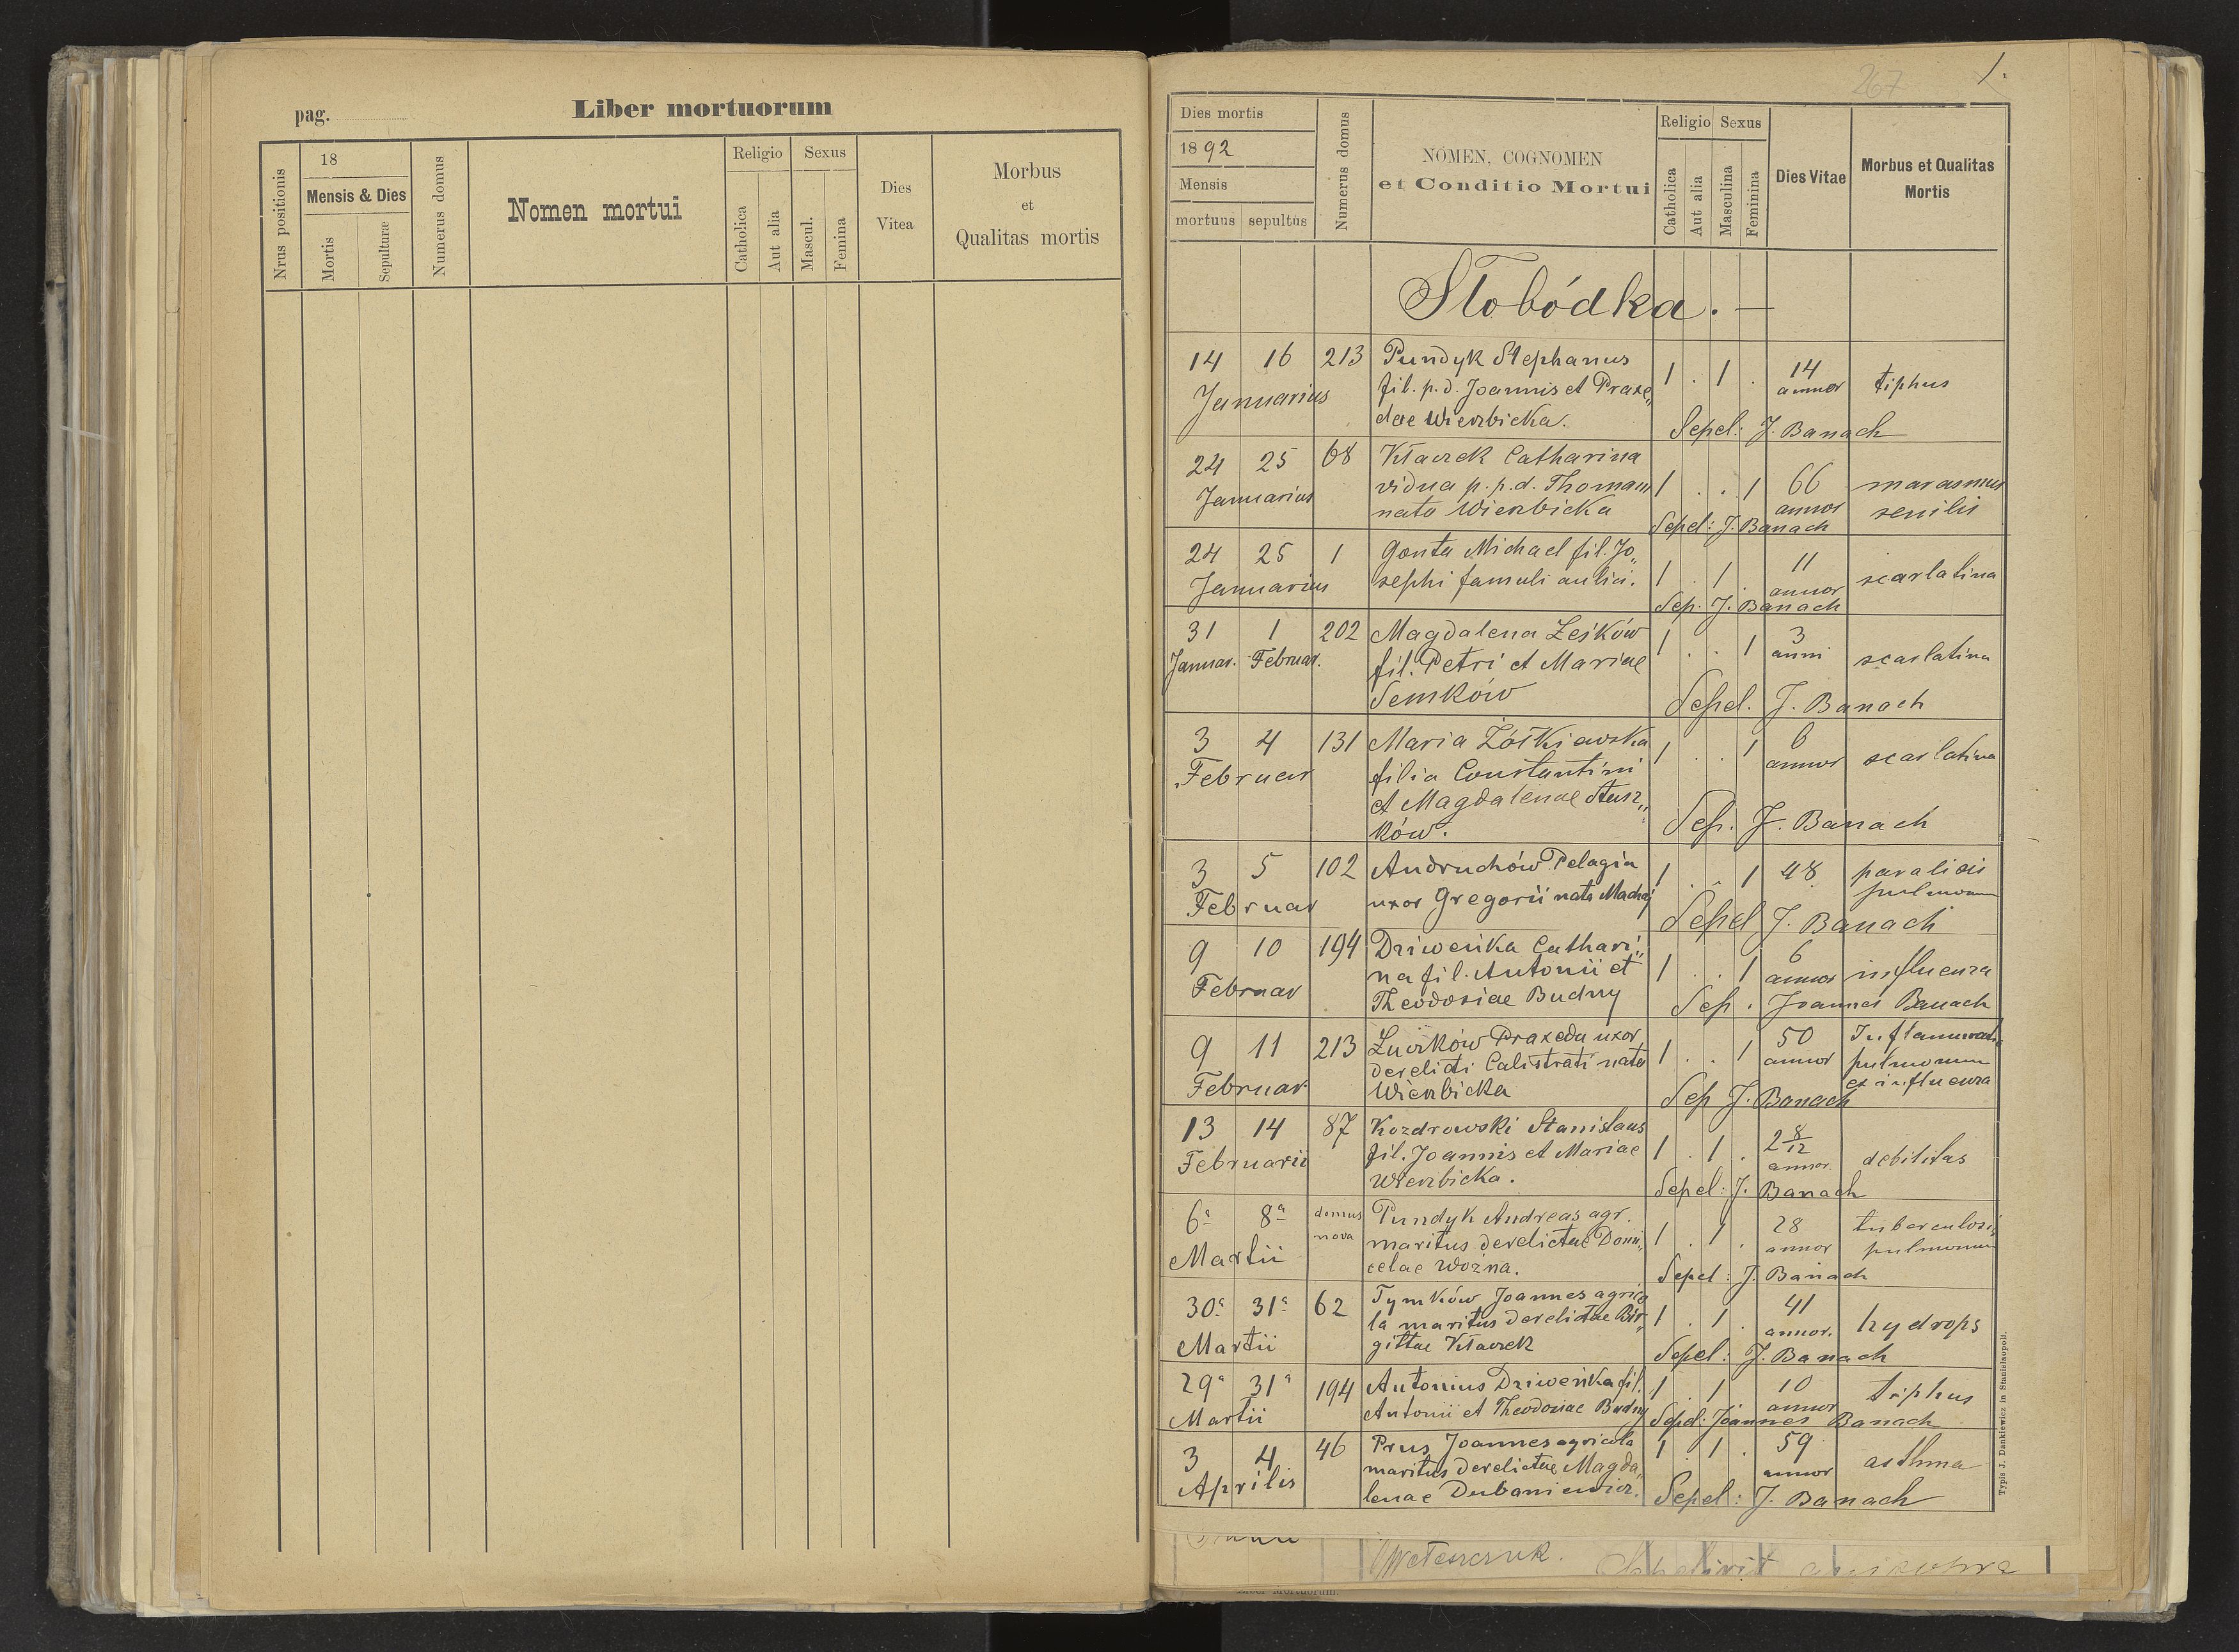 pag.
Liber mortuorum
Nrus positionis
18
Mensis & Dies
Mortis
Sepulturæ
Numerus domus
Nomen mortui
Religio
Sexus
Catholica
Aut alia
Mascul.
Femina
Dies
Vitea
Morbus
et
Qualitas mortis
267
1.
Dies mortis
1892
Mensis
mortuus sepultus
Numerus domus
NOMEN, COGNOMEN
et Conditio Mortui
Religio Sexus
Catholica
Aut alia
Masculina
Feminina
Dies Vitae
Morbus et Qualitas
Mortis
Słobódka.
14 16 213 Pundyk Stephanus
Januarius fil. p. d. Joannis et Praxe„ 1 . 1 . 14 annor tiphus
dae Wierzbicka. Sepel: J. Banach
24 25 68 Ktaczek Catharina
Januarius vidua p. p. d. Thomam 1 . . 1 66 marasmus
nata Wierzbicka annor senilis
Sepel: J. Banach
24 25 1 Gonta Michael fil. Jo„
Januarius sephi famuli aulici. 1 . 1 . 11 annor scarlatina
Sep. J. Banach
31 1 202 Magdalena Leśków
Januar. Februar. fil. Petri et Mariae 1 . . 1 3 anni scarlatina
Semków Sepel. J. Banach
3 4 131 Maria Żółkiewska
Februar filia Constantini 1 . . 1 6 annor scarlatina
et Magdalenae Stusz„
ków. Sep. J. Banach
3 5 102 Andruchów Pelagia 1 . . 1 48 paralisis
Februar uxor Gregorii nata Machaj pulmonum
Sepel J. Banach
9 10 194 Driweńka Cathari„
Februar na fil. Antonii et 1 . . 1 6 annor influenza
Theodosiae Budny Sep. Joannes Banach
9 11 213 Luczków Praxeda uxor 50 Inflammatio
Februar derelicti Calistrati nata 1 . . 1 annor pulmonum
Wierzbicka ex influenza
Sep J. Banach
13 14 87 Kozdrowski Stanislaus
Februarii fil. Joannis et Mariae 1 . 1 . 2 8/12 annor debilitas
Wierzbicka. Sepel: J. Banach
6a 8a domus nova Pundyk Andreas agr.
Martii maritus derelictae Domi„ 1 . 1 . 28 annor tuberculosis
celae Woźna. pulmonum
Sepel: J. Banach
30a 31a 62 Tymków Joannes agrico
Martii la maritus derelictae Bir„ 1 . 1 . 41 annor. hydrops
gittae Ktaczek Sepel: J. Banach
29a 31a 194 Antonius Driweńka fil. 1 . 1 10 annor tiphus
Martii Antonii et Theodosiae Budny Sepel: Joannes Banach
3 4 46 Prus Joannes agricola 1 . 1 . 59 annor asthma
Aprilis maritus derelictae Magda„
lenae Dubaniewicz. Sepel: J. Banach
Typis J. Dankiewicz in Stanislaopoli.
Liber mortuorum.